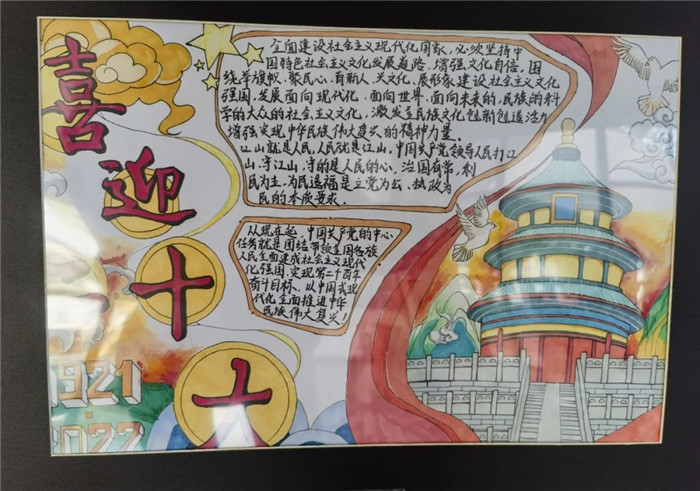 喜
迎
二
十
大
1921
2022
全面建设社会主义现代化国家，必须坚持中
国特色社会主义文化发展道路，增强文化自信，围
绕举旗帜、聚民心、育新人、兴文化、展形象建设社会主义文化
强国，发展面向现代化、面向世界、面向未来的，民族的科
学的大众的社会主义文化，激发全民族文化创新创造活力
增强实现中华民族伟大复兴的精神力量。
江山就是人民，人民就是江山，中国共产党领导人民打江
山、守江山，守的是人民的心，治国有常，利
民为主，为民造福是立党为公、执政为
民的本质要求。
从现在起，中国共产党的中心
任务就是团结带领全国各族
人民全面建成社会主义现代
化强国，实现第二个百年
奋斗目标，以中国式现
代化全面推进中华
民族伟大复兴！